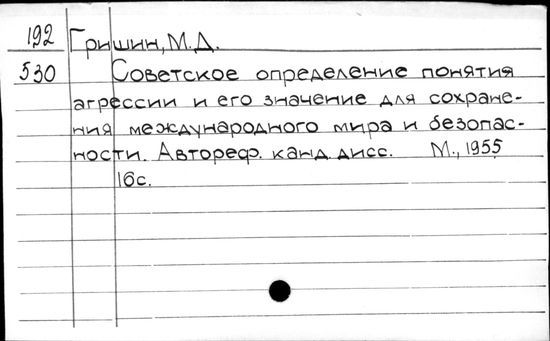 192 Гришин, М.Д.
530 Советское определение понятия
агрессии и его значение для сохране-
ния международного мира и безопас-
ности. Автореф. канд. дисс. М., 1955
16с.